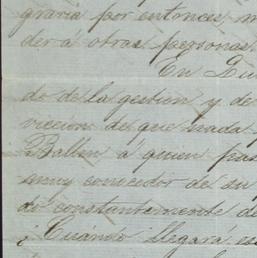 graria por entonces, m
der á otras personas.
En Qui
do de la gestion y de
viccion de que nada
Ballen á quien pas
muy conocedor de su
do constantemente de
¿Cuándo llegará es